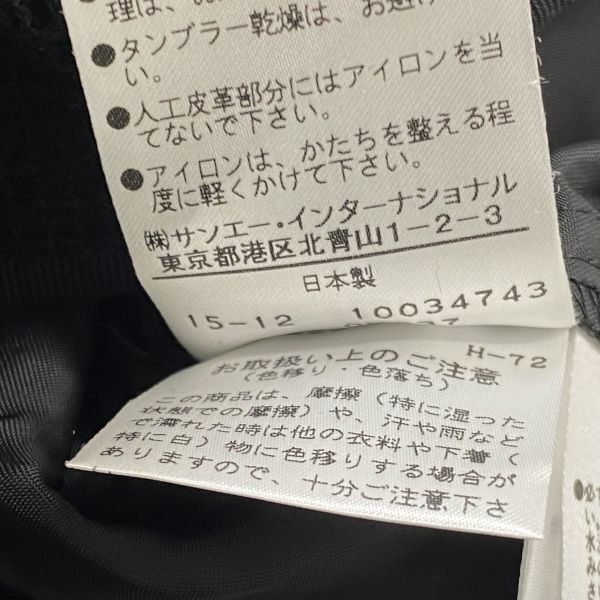 理は、お
●タンブラー乾燥は、お避け
い。
●人工皮革部分にはアイロンを当
てないで下さい。
●アイロンは、かたちを整える程
度に軽くかけて下さい。
㈱サンエー・インターナショナル
東京都港区北青山1-2-3
日本製
15-12 10034743
H-72
お取扱い上のご注意
(色移り・色落ち)
この商品は、摩擦(特に湿った
状態での摩擦)や、汗や雨など
で濡れた時は他の衣料や下着(
特に白)物に色移りする場合が
ありますので、十分ご注意下さ
●必
い。
水
み
さ